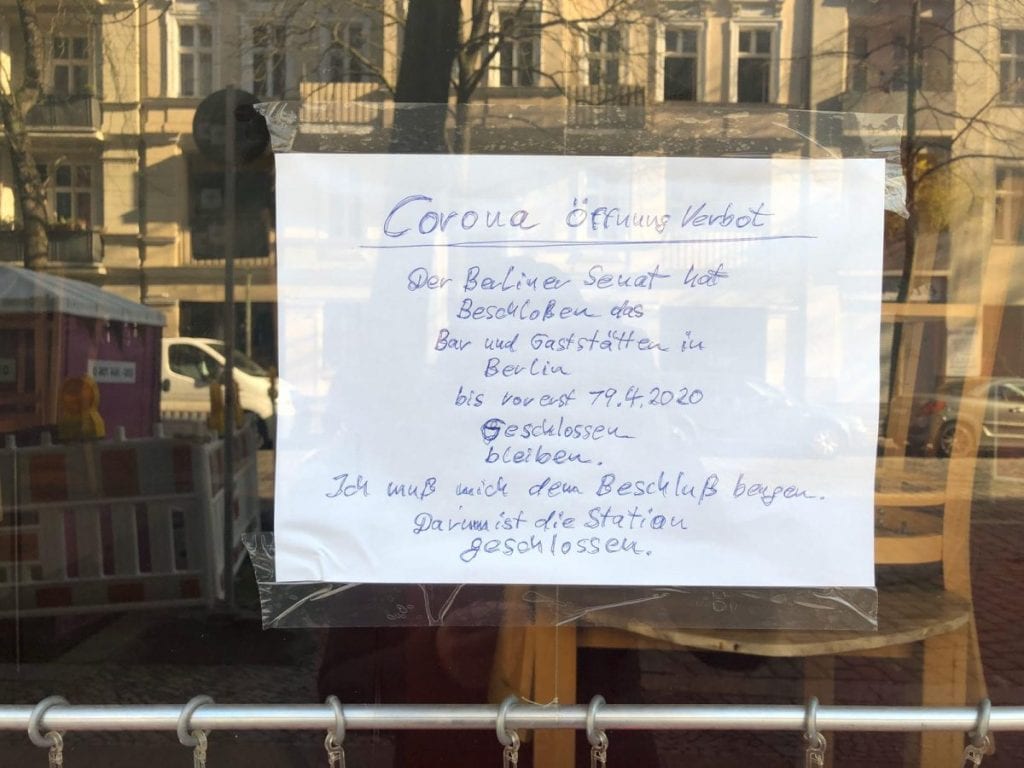 Corona Öffnung Verbot
Der Berliner Senat hat
Beschloßen das
Bar und Gaststätten in
Berlin
bis vorerst 19.4.2020
Geschlossen
bleiben.
Ich muß mich dem Beschluß beugen.
Darum ist die Station
geschlossen.